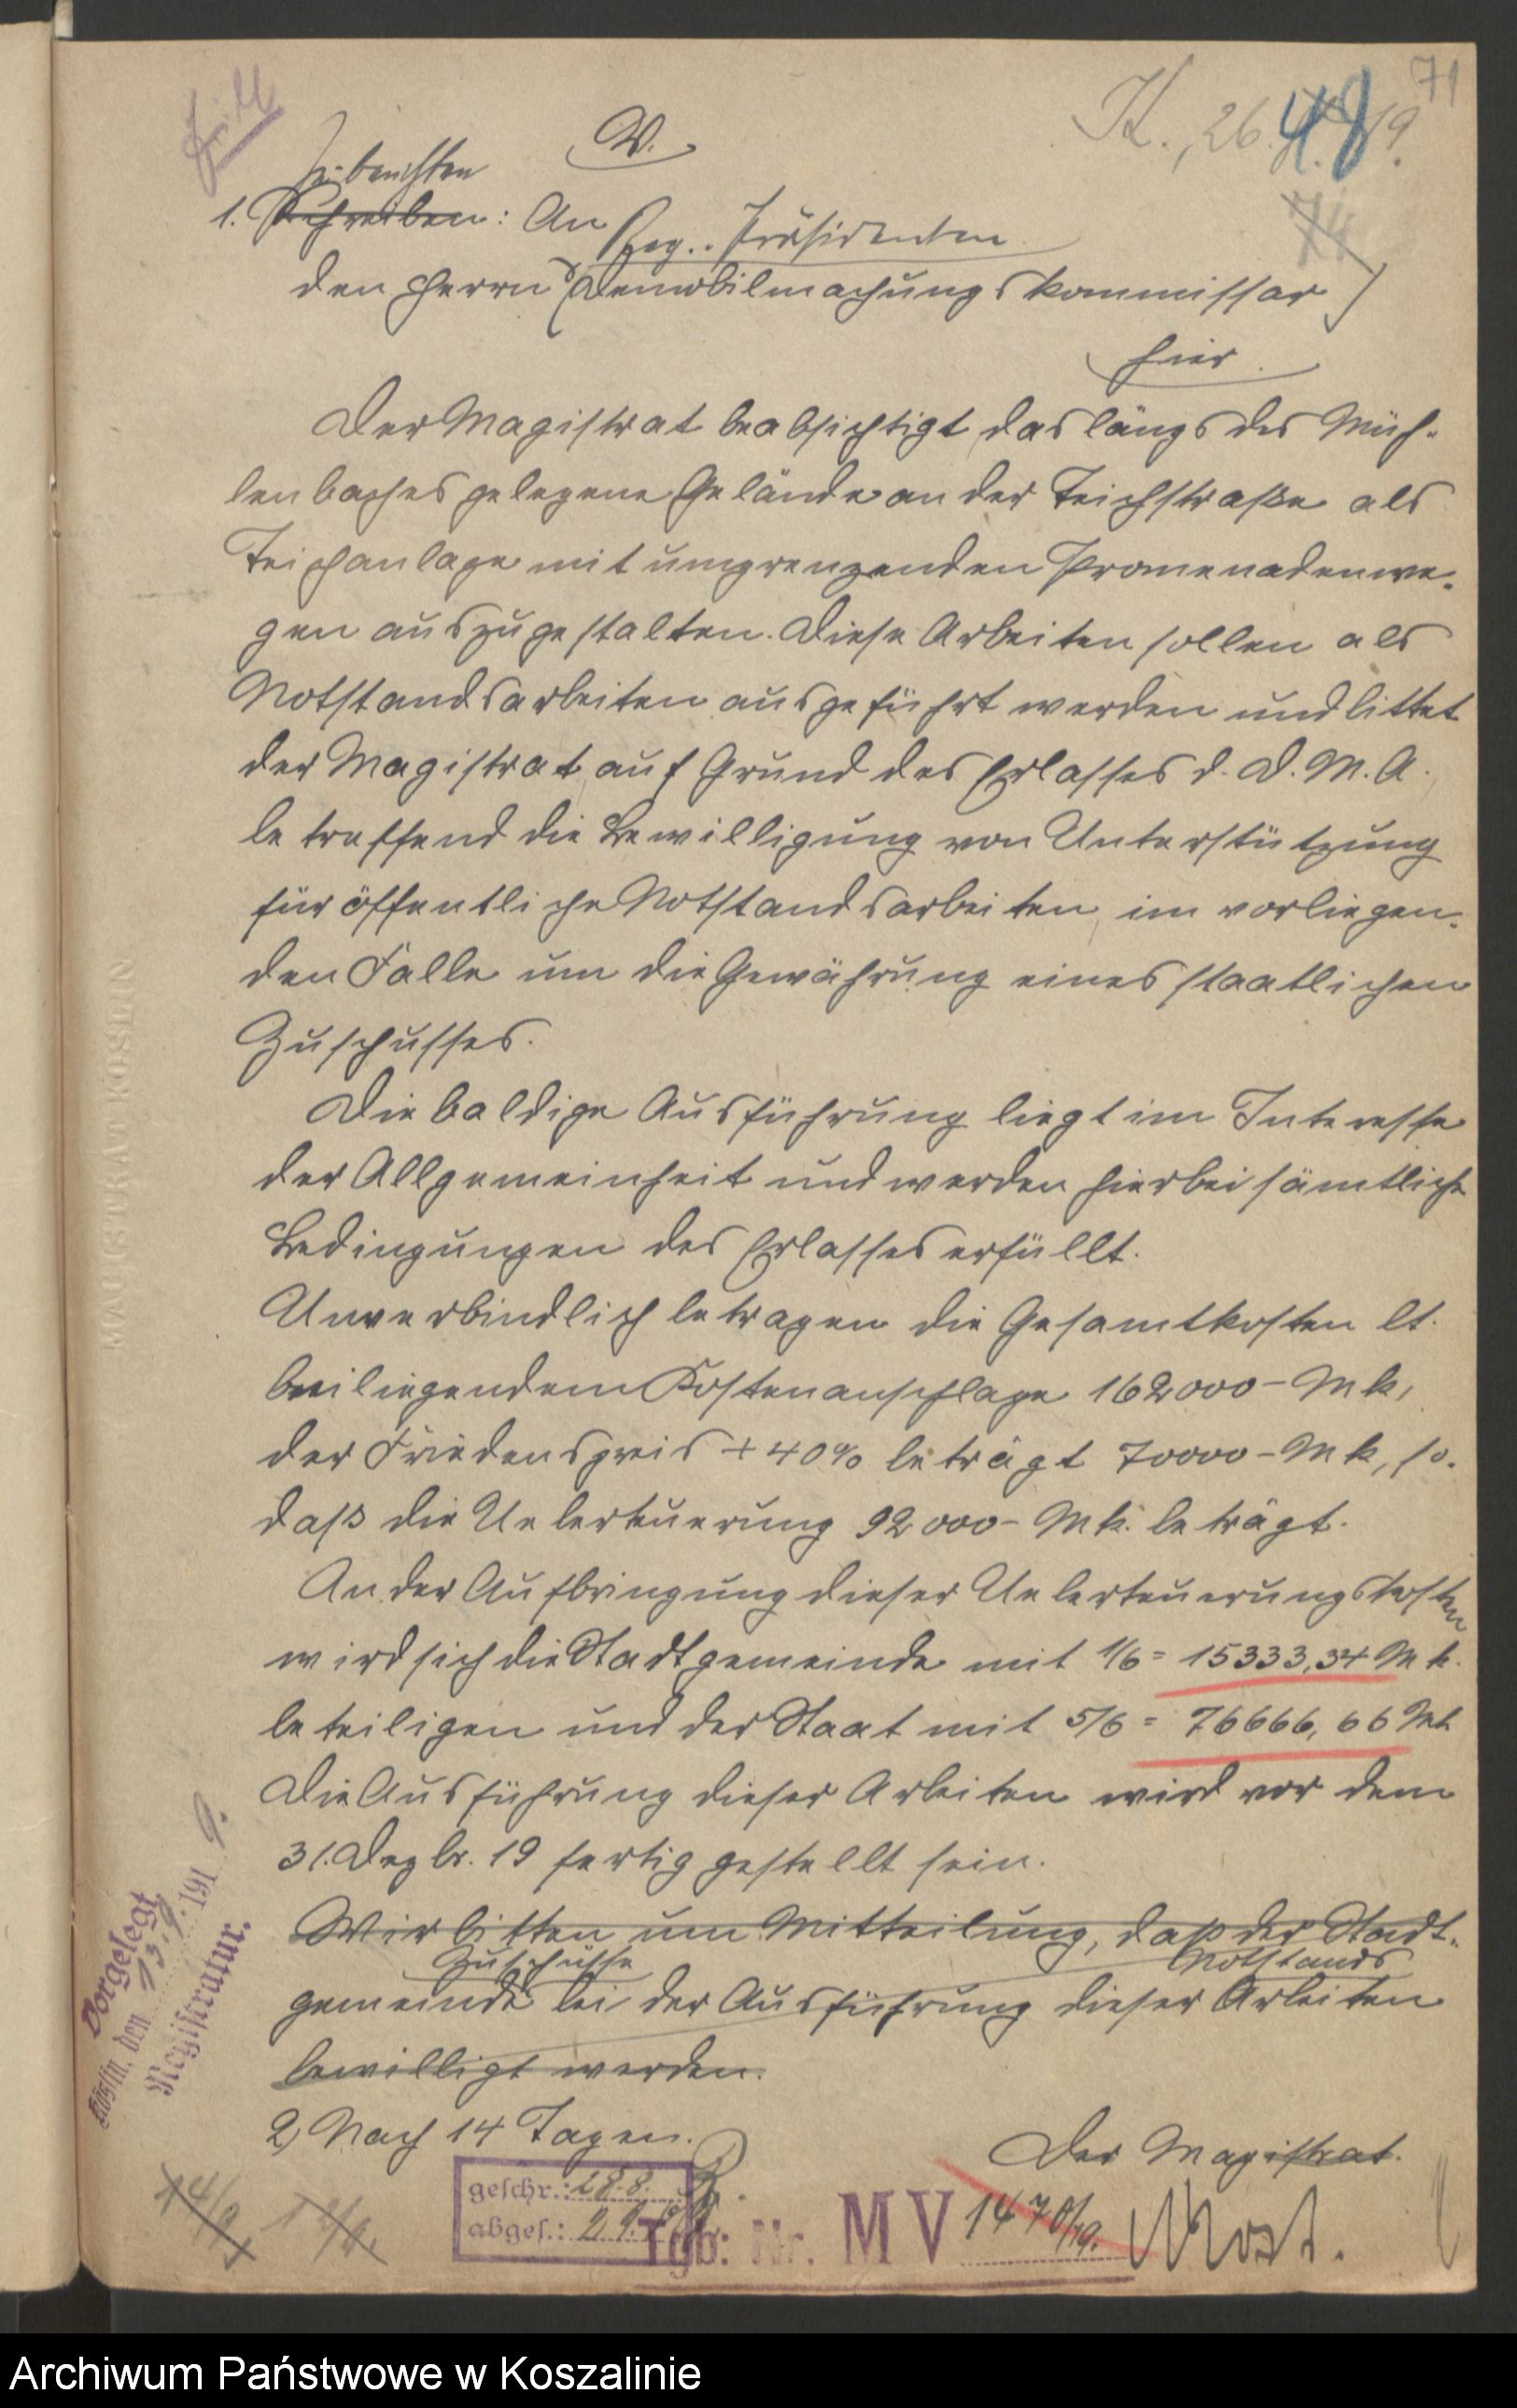 71
K., 26. 8. 19.
74
W.
Zu berichten
1. Schreiben: An
Reg.-Präsidenten
den Herrn (Demobilmachungskommissar)
hier.
Der Magistrat beabsichtigt das längs des Müh-
lenbaches gelegene Gelände an der Teichstraße als
Teichanlage mit umgrenzenden Promenadenwe-
gen auszugestalten. Diese Arbeiten sollen als
Notstandsarbeiten ausgeführt werden und bittet
der Magistrat auf Grund des Erlasses d. D. M. A.
betreffend die Bewilligung von Unterstützung
für öffentliche Notstandsarbeiten, im vorliegen-
den Falle um die Gewährung eines staatlichen
Zuschusses.
Die baldige Ausführung liegt im Interesse
der Allgemeinheit und werden hierbei sämtliche
Bedingungen des Erlasses erfüllt.
Unverbindlich betragen die Gesamtkosten lt.
beiliegendem Kostenanschlage 162000 – Mk,
der Friedenspreis + 40% beträgt 70000 – Mk, so-
daß die Ueberteuerung 92000 – Mk. beträgt.
An der Aufbringung dieser Ueberteuerungskosten
wird sich die Stadtgemeinde mit 1/6 = 15333,34 Mk.
beteiligen und der Staat mit 5/6 = 76666,66 Mk
Die Ausführung dieser Arbeiten wird vor dem
31. Dezbr. 19 fertig gestellt sein.
Wir bitten um Mitteilung, daß der Stadt-
Zuschüsse Notstands
gemeinde bei der Ausführung dieser Arbeiten
bewilligt werden.
2, Nach 14 Tagen.
Der Magistrat.
Vorgelegt
Köslin, den 13. 9. 191 9.
Registratur.
MAGISTRAT KÖSLIN
geschr.: 28.8.
abges.: 2.9.
Tgb: Nr. M V 1470/19.
14/9
Archiwum Państwowe w Koszalinie